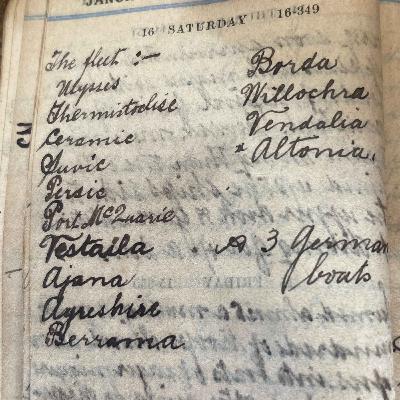 16 SATURDAY 16-349
The fleet :—
Ulysses
Thermistoclise
Ceramic
Suvic
Persic
Port McQuarie
Vestalla
Ajana
Ayreshire
Berrama
Borda
Willochra
Vendalia
* Altonia.
A 3 German
boats